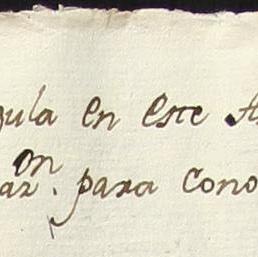 gula en este A
on
az. para cono